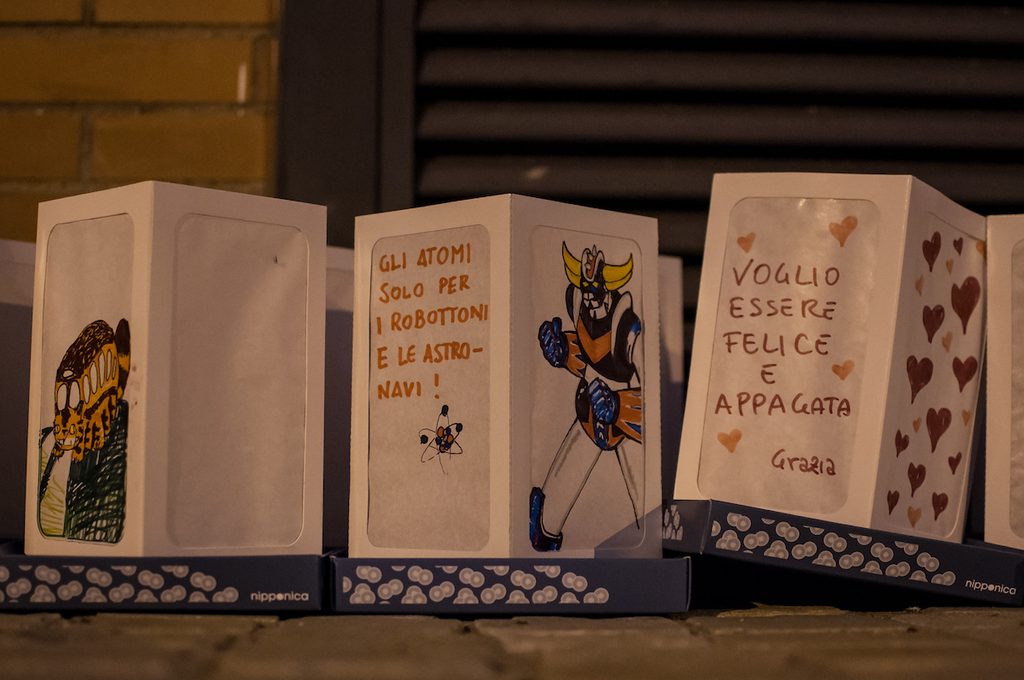 GLI ATOMI
SOLO PER
I ROBOTTONI
E LE ASTRO-
NAVI !
VOGLIO
ESSERE
FELICE
E
APPAGATA
Grazia
nipponica
nipponica